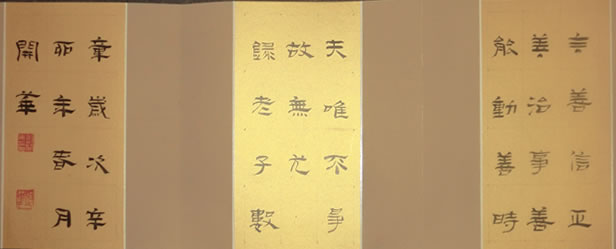 言善信正
善治事善
能動善時
夫唯不爭
故無尤
錄老子數
章歲次辛
卯年春月
開華